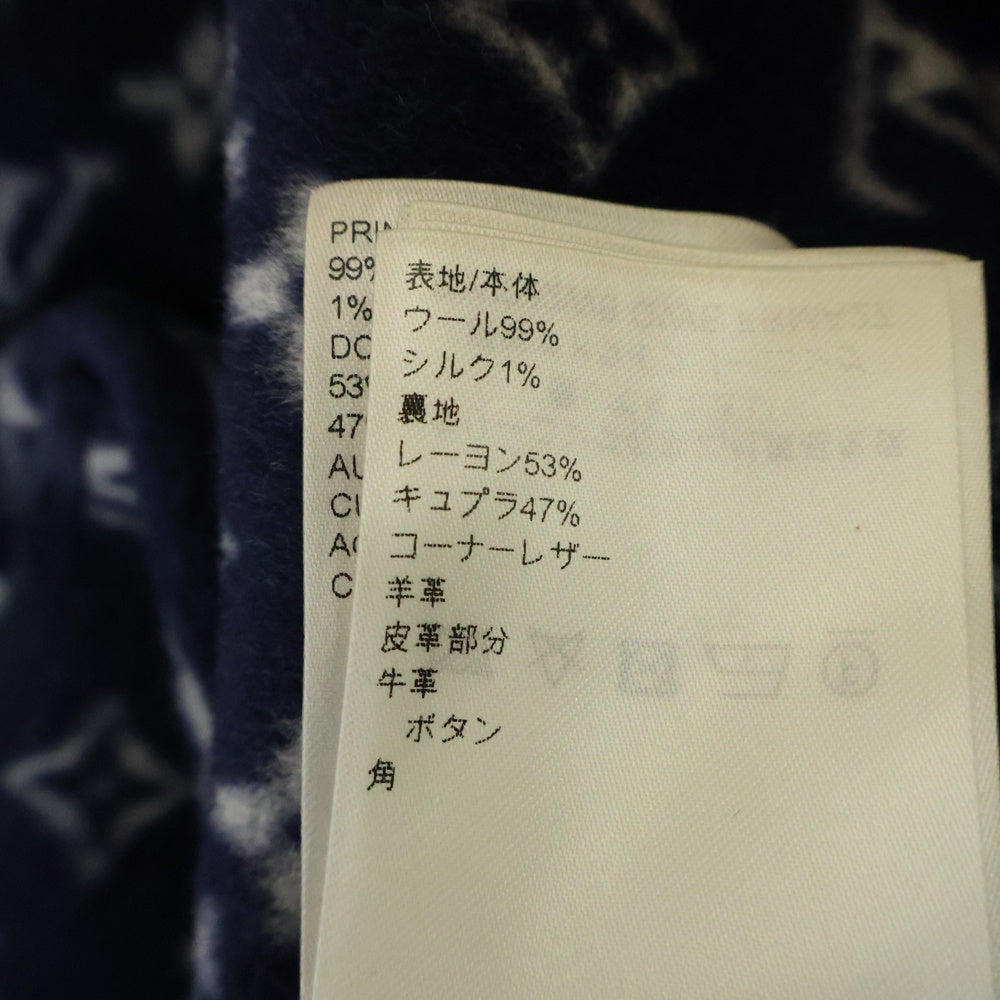 PRI
99%
1%
DO
53%
47
AU
CU
AC
C
表地/本体
ウール99%
シルク1%
裏地
レーヨン53%
キュプラ47%
コーナーレザー
羊革
皮革部分
牛革
ボタン
角